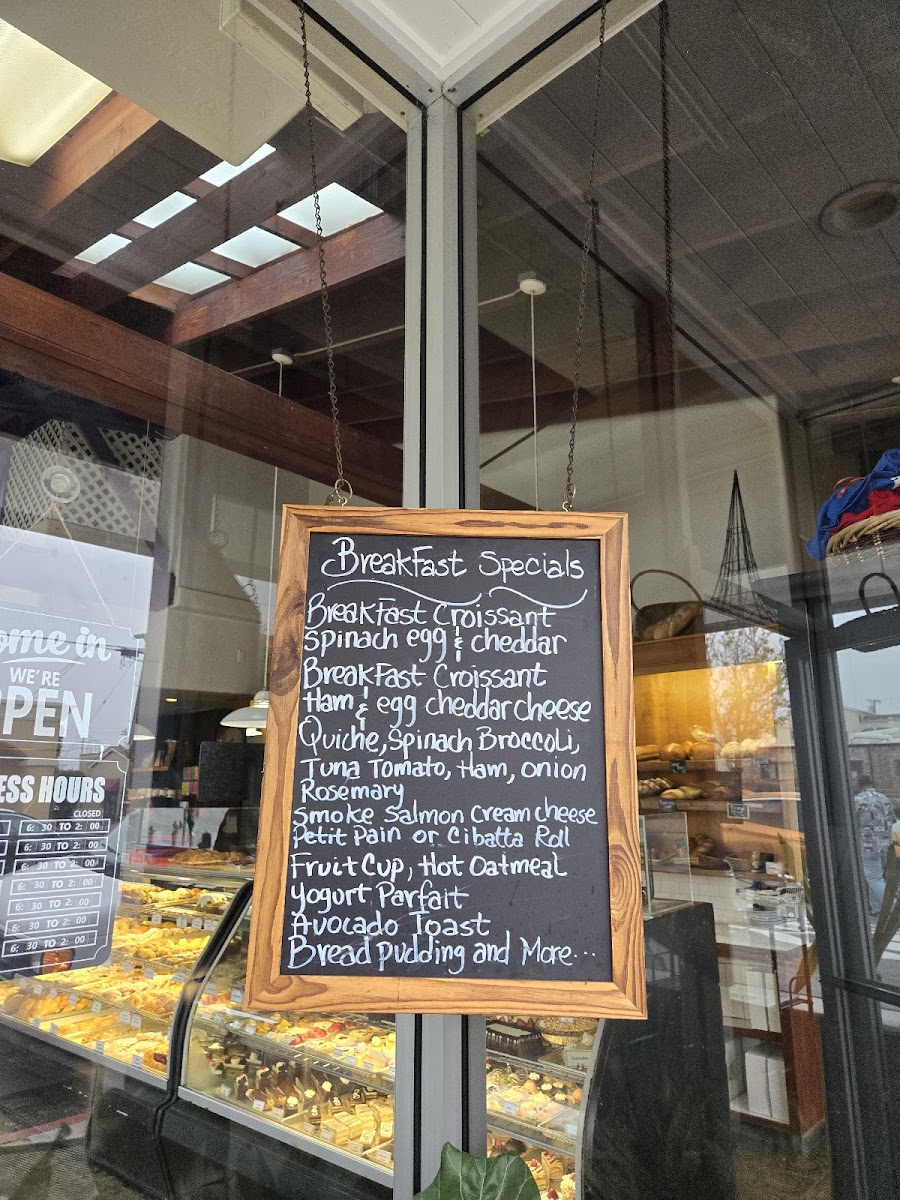 Breakfast Specials
Breakfast Croissant
Spinach egg & cheddar
Breakfast Croissant
Ham & egg cheddar cheese
Quiche, Spinach Broccoli,
Tuna Tomato, Ham, onion
Rosemary
Smoke Salmon Cream cheese
Petit Pain or Cibatta Roll
Fruit Cup, Hot Oatmeal
Yogurt Parfait
Avocado Toast
Bread pudding and More...
ome in
WE'RE
PEN
ESS HOURS
CLOSED
6: 30 TO 2: 00
6: 30 TO 2: 00
6: 30 TO 2: 00
6: 30 TO 2: 00
6: 30 TO 2: 00
6: 30 TO 2: 00